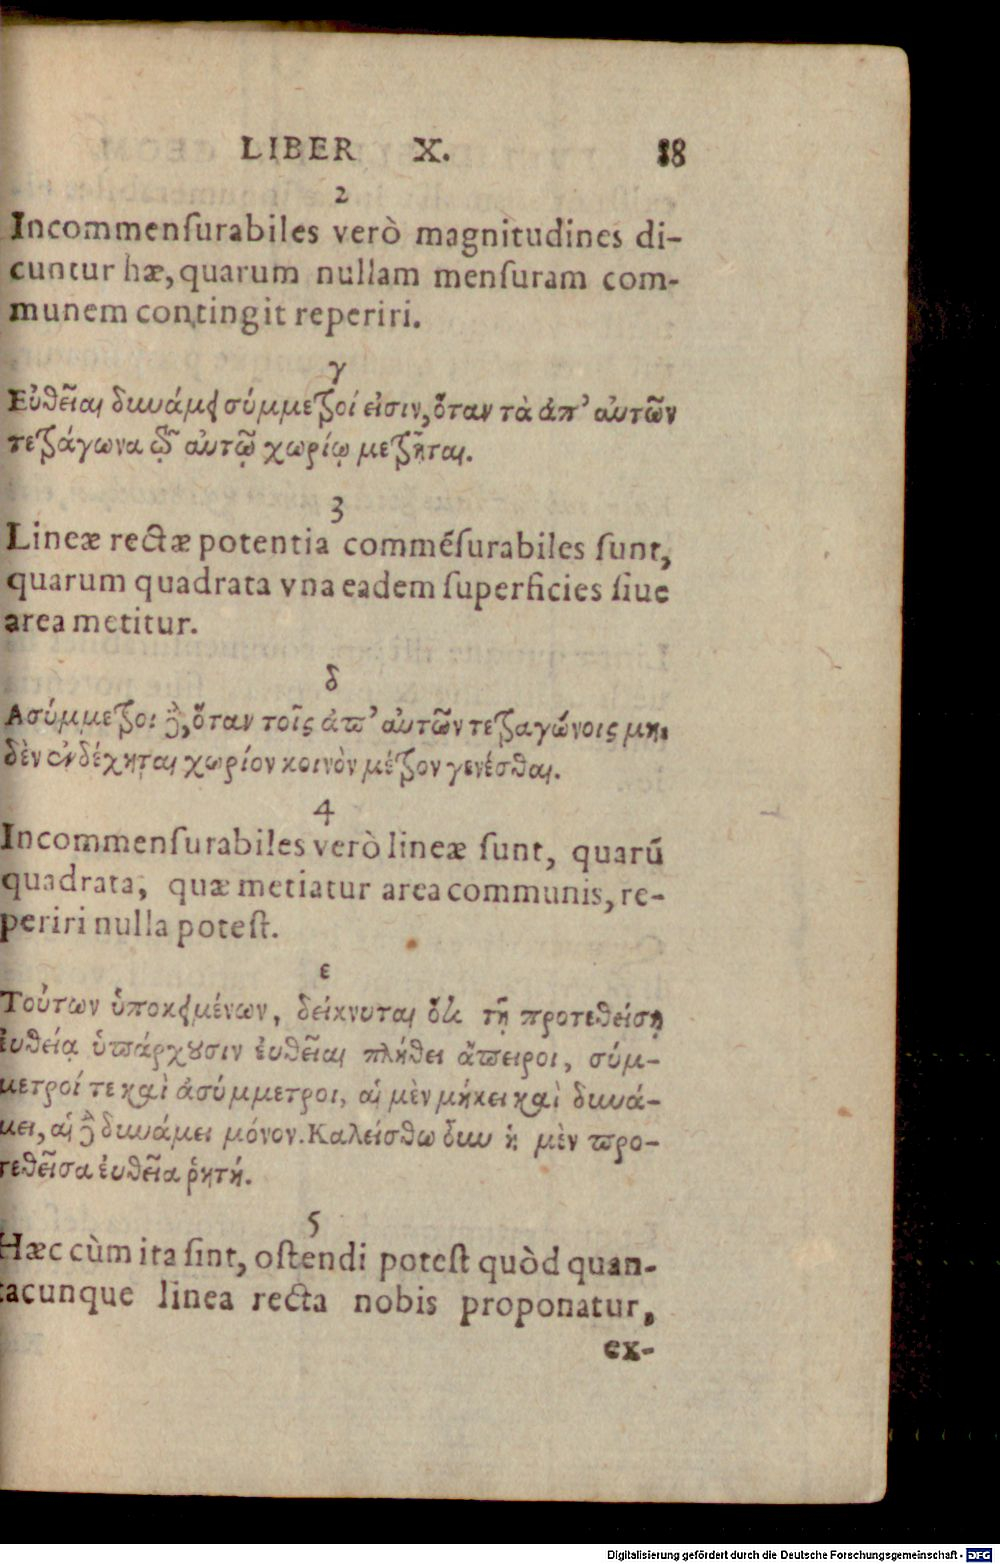 LIBER X. 18
2
Incommenſurabiles verò magnitudines di-
cuntur hæ, quarum nullam menſuram com-
munem contingit reperiri.
γ
Εὐθεῖαι δυνάμει σύμμετροί εἰσιν, ὅταν τὰ ἀπ᾽ αὐτῶν
τετράγωνα τῷ αὐτῷ χωρίῳ μετρῆται.
3
Lineæ rectæ potentia commẽſurabiles ſunt,
quarum quadrata vna eadem ſuperficies ſiue
area metitur.
δ
Ασύμμετροι δὲ, ὅταν τοῖς ἀπ᾽ αὐτῶν τετραγώνοις μη-
δὲν ἐνδέχηται χωρίον κοινὸν μέτρον γενέσθαι.
4
Incommenſurabiles verò lineæ ſunt, quarũ
quadrata, quæ metiatur area communis, re-
periri nulla poteſt.
ε
Τούτων ὑποκειμένων, δείκνυται ὅτι τῇ προτεθείσῃ
ἐυθείᾳ ὑπάρχουσιν ἐυθεῖαι πλήθει ἄπειροι, σύμ-
μετροί τε καὶ ἀσύμμετροι, αἱ μὲν μήκει καὶ δυνά-
μει, αἱ δὲ δυνάμει μόνον. Καλείσθω οὖν ἡ μὲν προ-
τεθεῖσα ἐυθεῖα ῥητή.
5
Hæc cùm ita ſint, oſtendi poteſt quòd quan-
tacunque linea recta nobis proponatur,
ex-
Digitalisierung gefördert durch die Deutsche Forschungsgemeinschaft - DFG